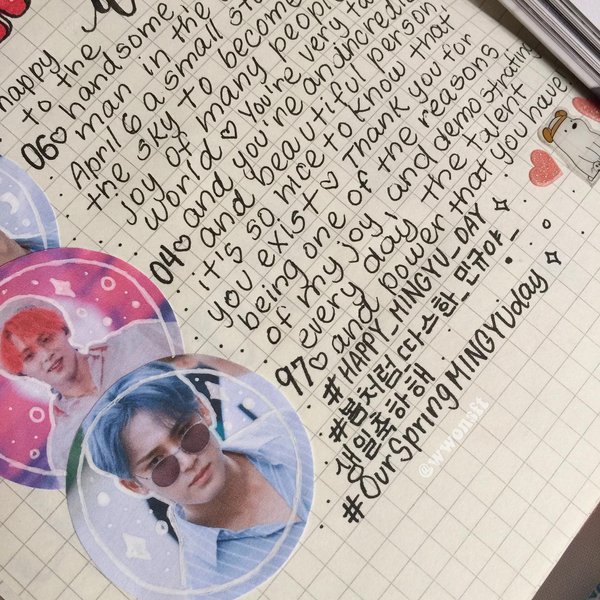 happy
to the
handsome
06♡ man in the
April 6 a small
the sky to become
joy of many people
world ♡ You're very
04♡ and you're an
and beautiful person
it's so nice to know that
you exist ♡ Thank you for
being one of the reasons
of my joy and demostrating
every day, the talent
97♡ and power that you have
#HAPPY_MINGYU_DAY
#봄처럼_따스한_민규야_
생일축하해
#OurSpringMINGYUday
@wwonsft